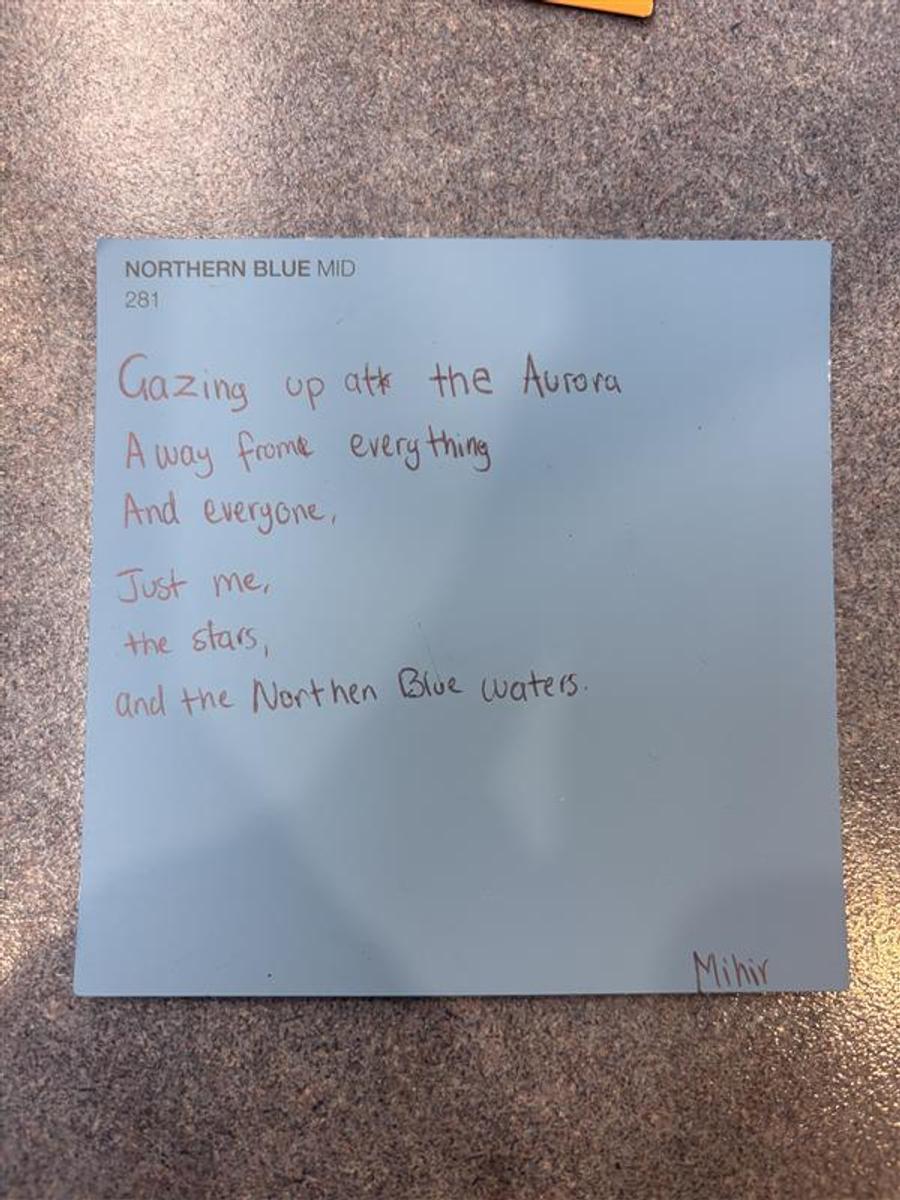 NORTHERN BLUE MID
281
Gazing up at the Aurora
Away from everything
And everyone,
Just me,
the stars,
and the Northen Blue waters.
Mihir